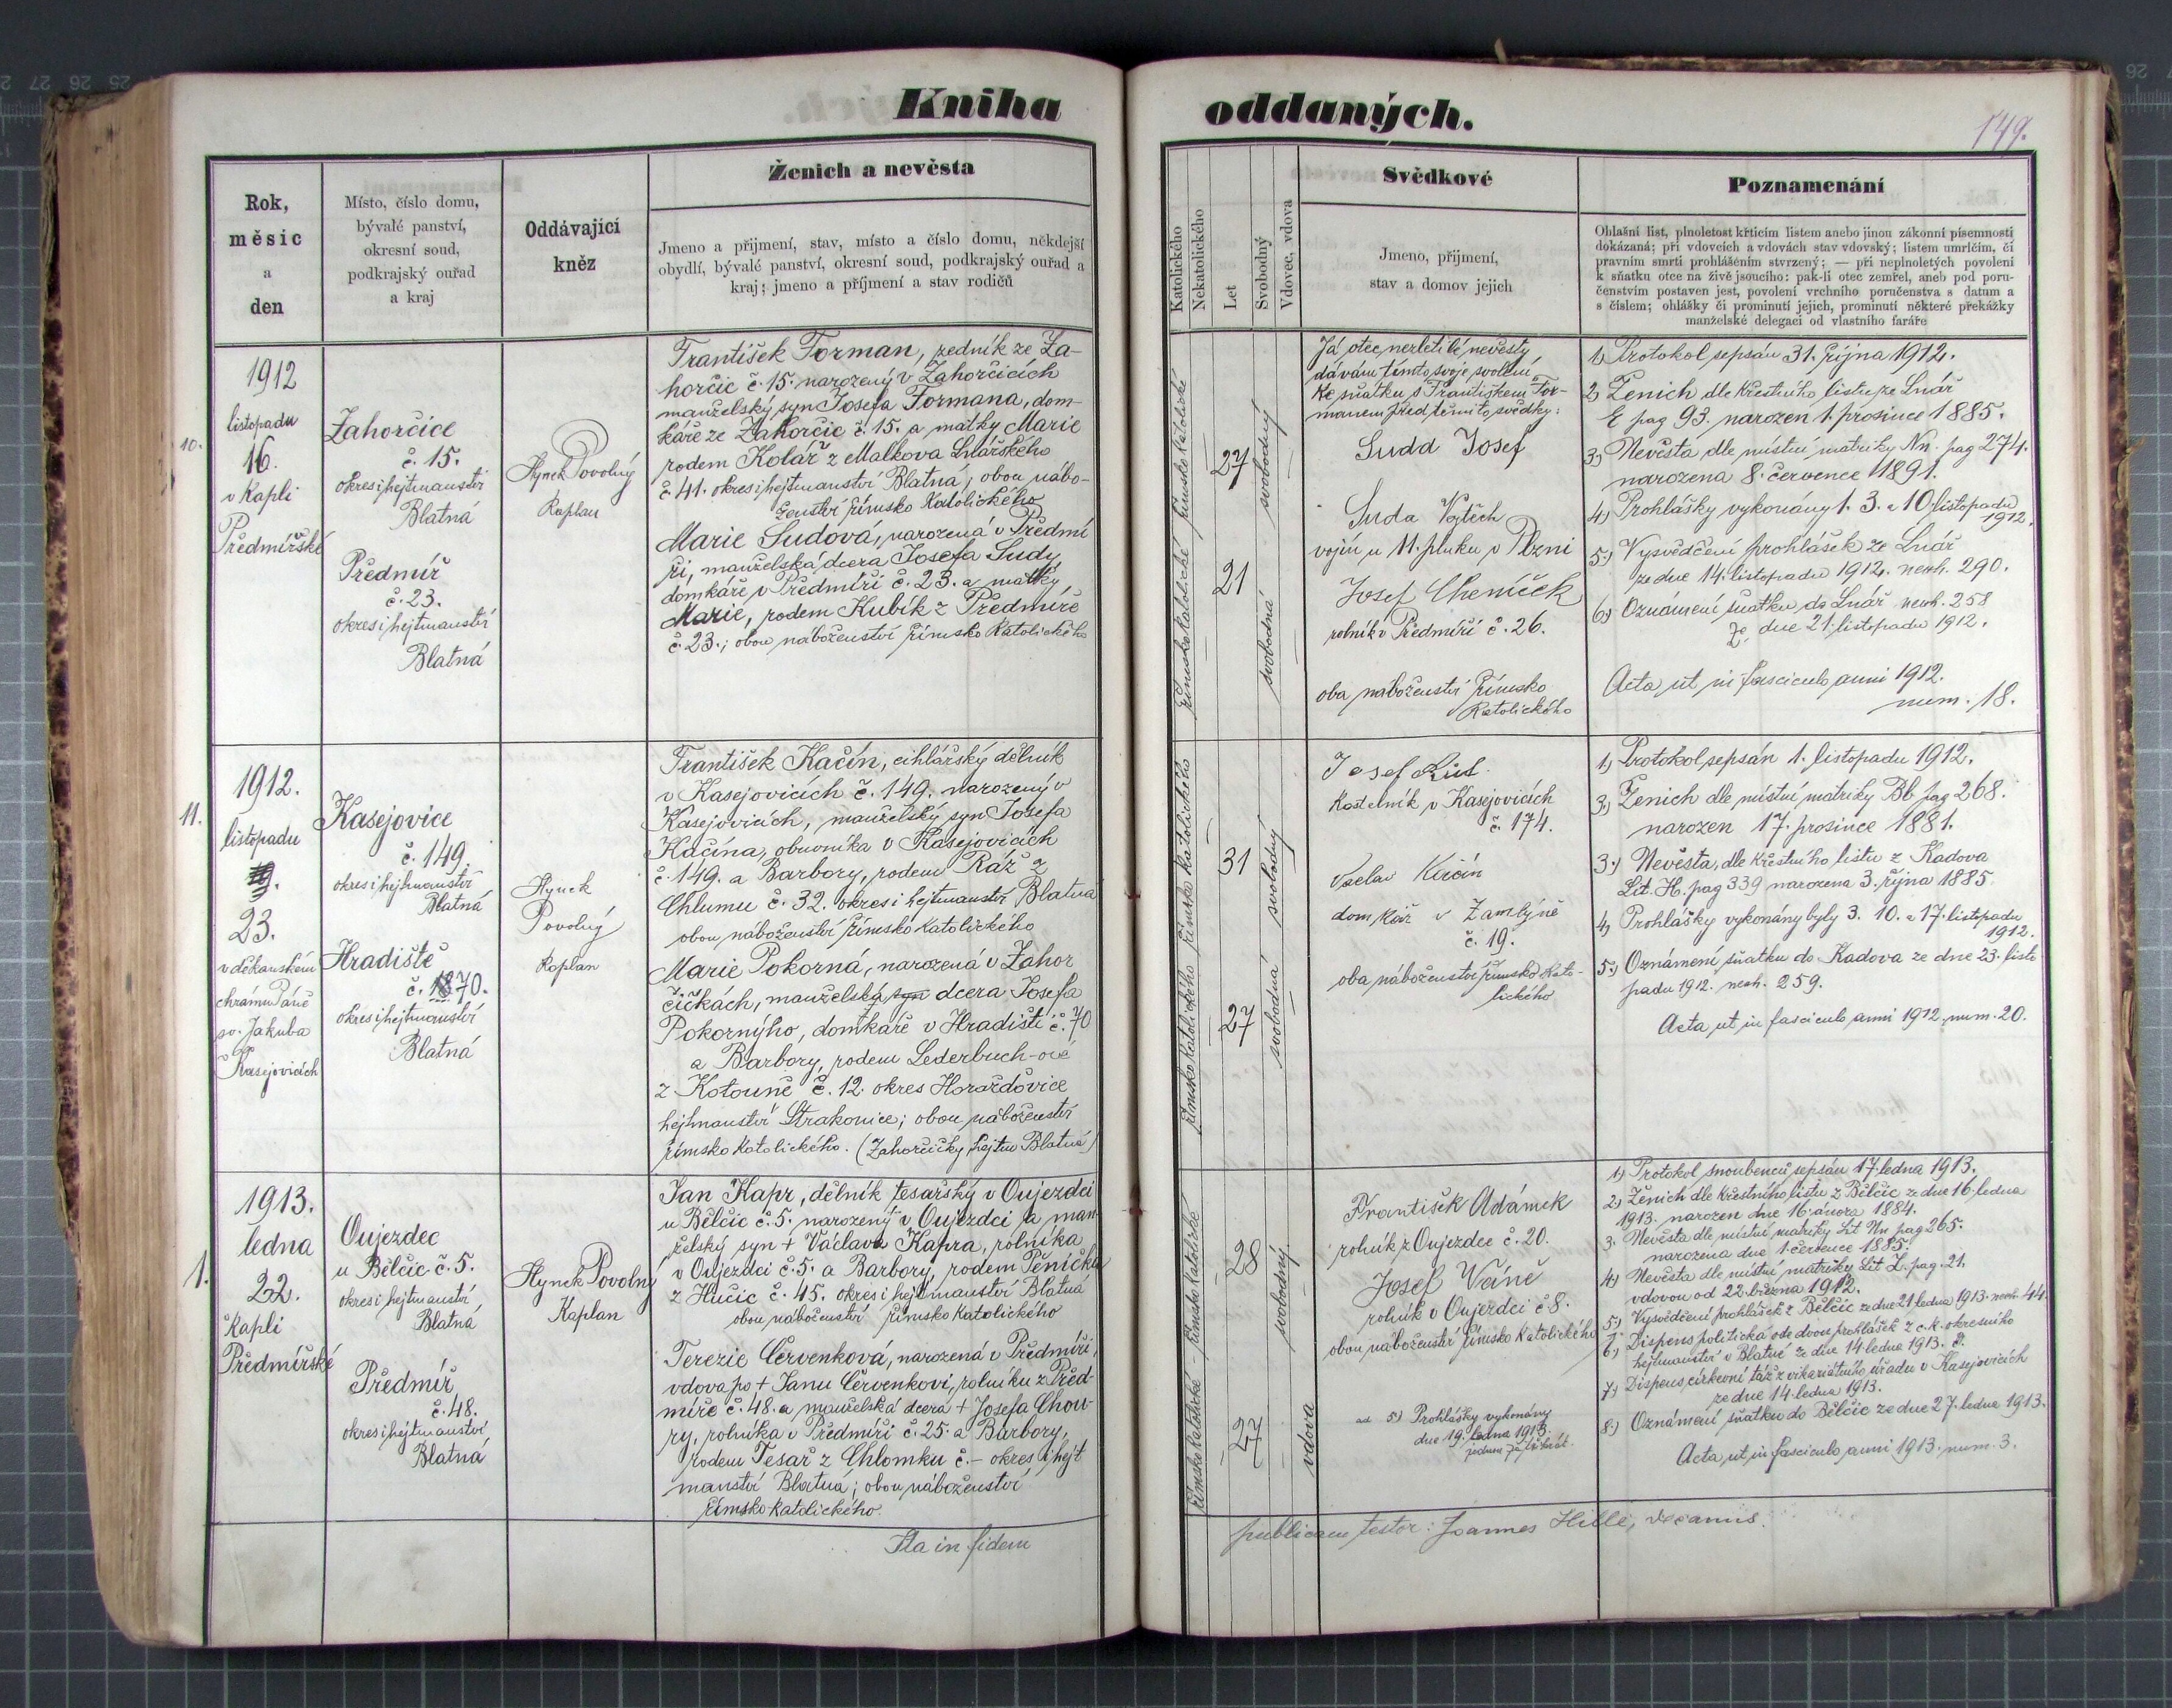 Kniha oddaných.
149.
Rok,
měsíc
a
den
Místo, číslo domu,
bývalé panství,
okresní soud,
podkrajský ouřad
a kraj
Oddávající
kněz
Ženich a nevěsta
Jmeno a přijmení, stav, místo a číslo domu, někdejší
obydlí, bývalé panství, okresní soud, podkrajský ouřad a
kraj; jmeno a příjmení a stav rodičů
Katolického
Nekatolického
Let
Svobodný
Vdovec, vdova
Svědkové
Jmeno, přijmení,
stav a domov jejich
Poznamenání
Ohlašní list, plnoletost křticím listem anebo jinou zákonní písemností
dokázaná; při vdovcích a vdovách stav vdovský; listem umrlčím, čí
pravním smrti prohlášením stvrzený; — při neplnoletých povolení
k sňatku otce na živě jsoucího: pak-li otec zemřel, aneb pod poru-
čenstvím postaven jest, povolení vrchního poručenstva s datum a
s číslem; ohlášky či prominutí jejich, prominutí některé překážky
manželské delegací od vlastního faráře
10.
1912
listopadu
16.
v kapli
Předmířské
Zahorčice
č. 15.
okres i hejtmanství
Blatná
Předmíř
č. 23.
okres i hejtmanství
Blatná
Hynek Povolný
Kaplan
František Forman, zedník ze Za-
horčic č. 15. narozený v Zahorčicích
manželský syn Josefa Formana, dom-
káře ze Zahorčic č. 15. a matky Marie
rodem Kolář z Malkova Lnářského
č. 41. okres i hejtmanství Blatná; obou nábo-
ženství římsko katolického
Marie Sudová, narozená v Předmí
ři, manželská dcera Josefa Sudy
domkáře v Předmíři č. 23. a matky
Marie, rodem Kubík z Předmíře
č. 23.; obou náboženství římsko katolického
římsko katolické
27
svobodný
římsko katolické
21
svobodná
Já otec nezletilé nevěsty
dávám tímto svoje svolení
ke sňatku s Františkem For-
manem před těmito svědky:
Suda Josef
Suda Vojtěch
vojín u 11. pluku v Plzni
Josef Cheníček
rolník v Předmíři č. 26.
oba náboženství římsko
katolického
1) Protokol sepsán 31. října 1912.
2) Ženich dle křestního listu ze Lnář
E pag 93. narozen 1. prosince 1885.
3) Nevěsta dle místní matriky Nn. pag 274.
narozena 8. července 1891.
4) Prohlášky vykonány 1. 3. a 10 listopadu
1912.
5) Vysvědčení prohlášek ze Lnář
ze dne 14. listopadu 1912. nexh. 290.
6) Oznámení sňatku do Lnář nexh. 258
ze dne 21. listopadu 1912.
Acta ut in fasciculo anni 1912.
num. 18.
11.
1912.
listopadu
23.
v děkanském
chrámu Páně
sv. Jakuba
Kasejovicích
Kasejovice
č. 149.
okres i hejtmanství
Blatná
Hradiště
č. 70.
okres i hejtmanství
Blatná
Hynek
Povolný
Kaplan
František Kačín, cihlářský dělník
v Kasejovicích č. 149. narozený v
Kasejovicích, manželský syn Josefa
Kačína, obuvníka v Kasejovicích
č. 149. a Barbory, rodem Ráž z
Chlumu č. 32. okres i hejtmanství Blatná
obou náboženství římsko katolického
Marie Pokorná, narozená v Zahor
čičkách, manželská syn dcera Josefa
Pokorného, domkáře v Hradišti č. 70
a Barbory, rodem Lederbuch-ové
z Kotouně č. 12. okres Horažďovice
hejtmanství Strakonice; obou náboženství
římsko katolického. (Zahorčičky, hejtm Blatná)
římsko katolického
31
svobodný
římsko katolického
27
svobodná
Josef
kostelník v Kasejovicích
č. 174.
Václav
domkář v Zámlýně
č. 19.
oba náboženství římsko kato-
lického
1) Protokol sepsán 1. listopadu 1912.
3) Ženich dle místní matriky Bb pag 268.
narozen 17. prosince 1881.
3) Nevěsta, dle křestního listu z Kadova
Lit. H. pag 339 narozena 3. října 1885.
4) Prohlášky vykonány byly 3. 10. a 17. listopadu
1912.
5) Oznámení sňatku do Kadova ze dne 23. listo
padu 1912. nexh. 259.
Acta ut in fasciculo anni 1912. num. 20.
1.
1913.
ledna
22.
v kapli
Předmířské
Oujezdec
u Bělčic č. 5.
okres i hejtmanství
Blatná
Předmíř
č. 48.
okres i hejtmanství
Blatná
Hynek Povolný
Kaplan
Jan Kapr, dělník tesařský v Oujezdci
u Bělčic č. 5. narozený v Oujezdci a man-
želský syn + Václava Kapra, rolníka
v Oujezdci č. 5. a Barbory, rodem Pěnička
z Hučic č. 45. okres i hejtmanství Blatná
obou náboženství římsko katolického
Terezie Červenková, narozená v Předmíři,
vdova po + Janu Červenkovi, rolníku z Před-
míře č. 48. a manželská dcera + Josefa Chou-
ry, rolníka v Předmíři č. 25. a Barbory,
rodem Tesař z Chlomku č. – okres i hejt
manství Blatná; obou náboženství
římsko katolického.
římsko katolické
28
svobodný
římsko katolické
27
vdova
František Adámek
rolník z Oujezdce č. 20.
Josef Váně
rolník v Oujezdci č 8.
obou náboženství římsko katolického
ad 5) Prohlášky vykonány
dne 19. ledna 1913.
jednou za třikrát.
1) Protokol snoubenců sepsán 17. ledna 1913.
2) Ženich dle křestního listu z Bělčic ze dne 16. ledna
1913. narozen dne 16. února 1884.
3. Nevěsta dle místní matriky Lit Nn pag 265.
narozena dne 1. července 1885.
4) Nevěsta dle místní matriky Lit L. pag. 21.
vdovou od 22. března 1912.
5) Vysvědčení prohlášek z Bělčic ze dne 21 ledna 1913. nexh. 44.
6) Dispens politická ode dvou prohlášek z c. k. okresního
hejtmanství v Blatné ze dne 14. ledna 1913. č.
7) Dispens církevní táž z vikariátního úřadu v Kasejovicích
ze dne 14. ledna 1913.
8) Oznámení sňatku do Bělčic ze dne 27. ledna 1913.
Acta, ut in fasciculo anni 1913. num. 3.
Ita in fidem publicam testor: Joannes Hille, decanus.